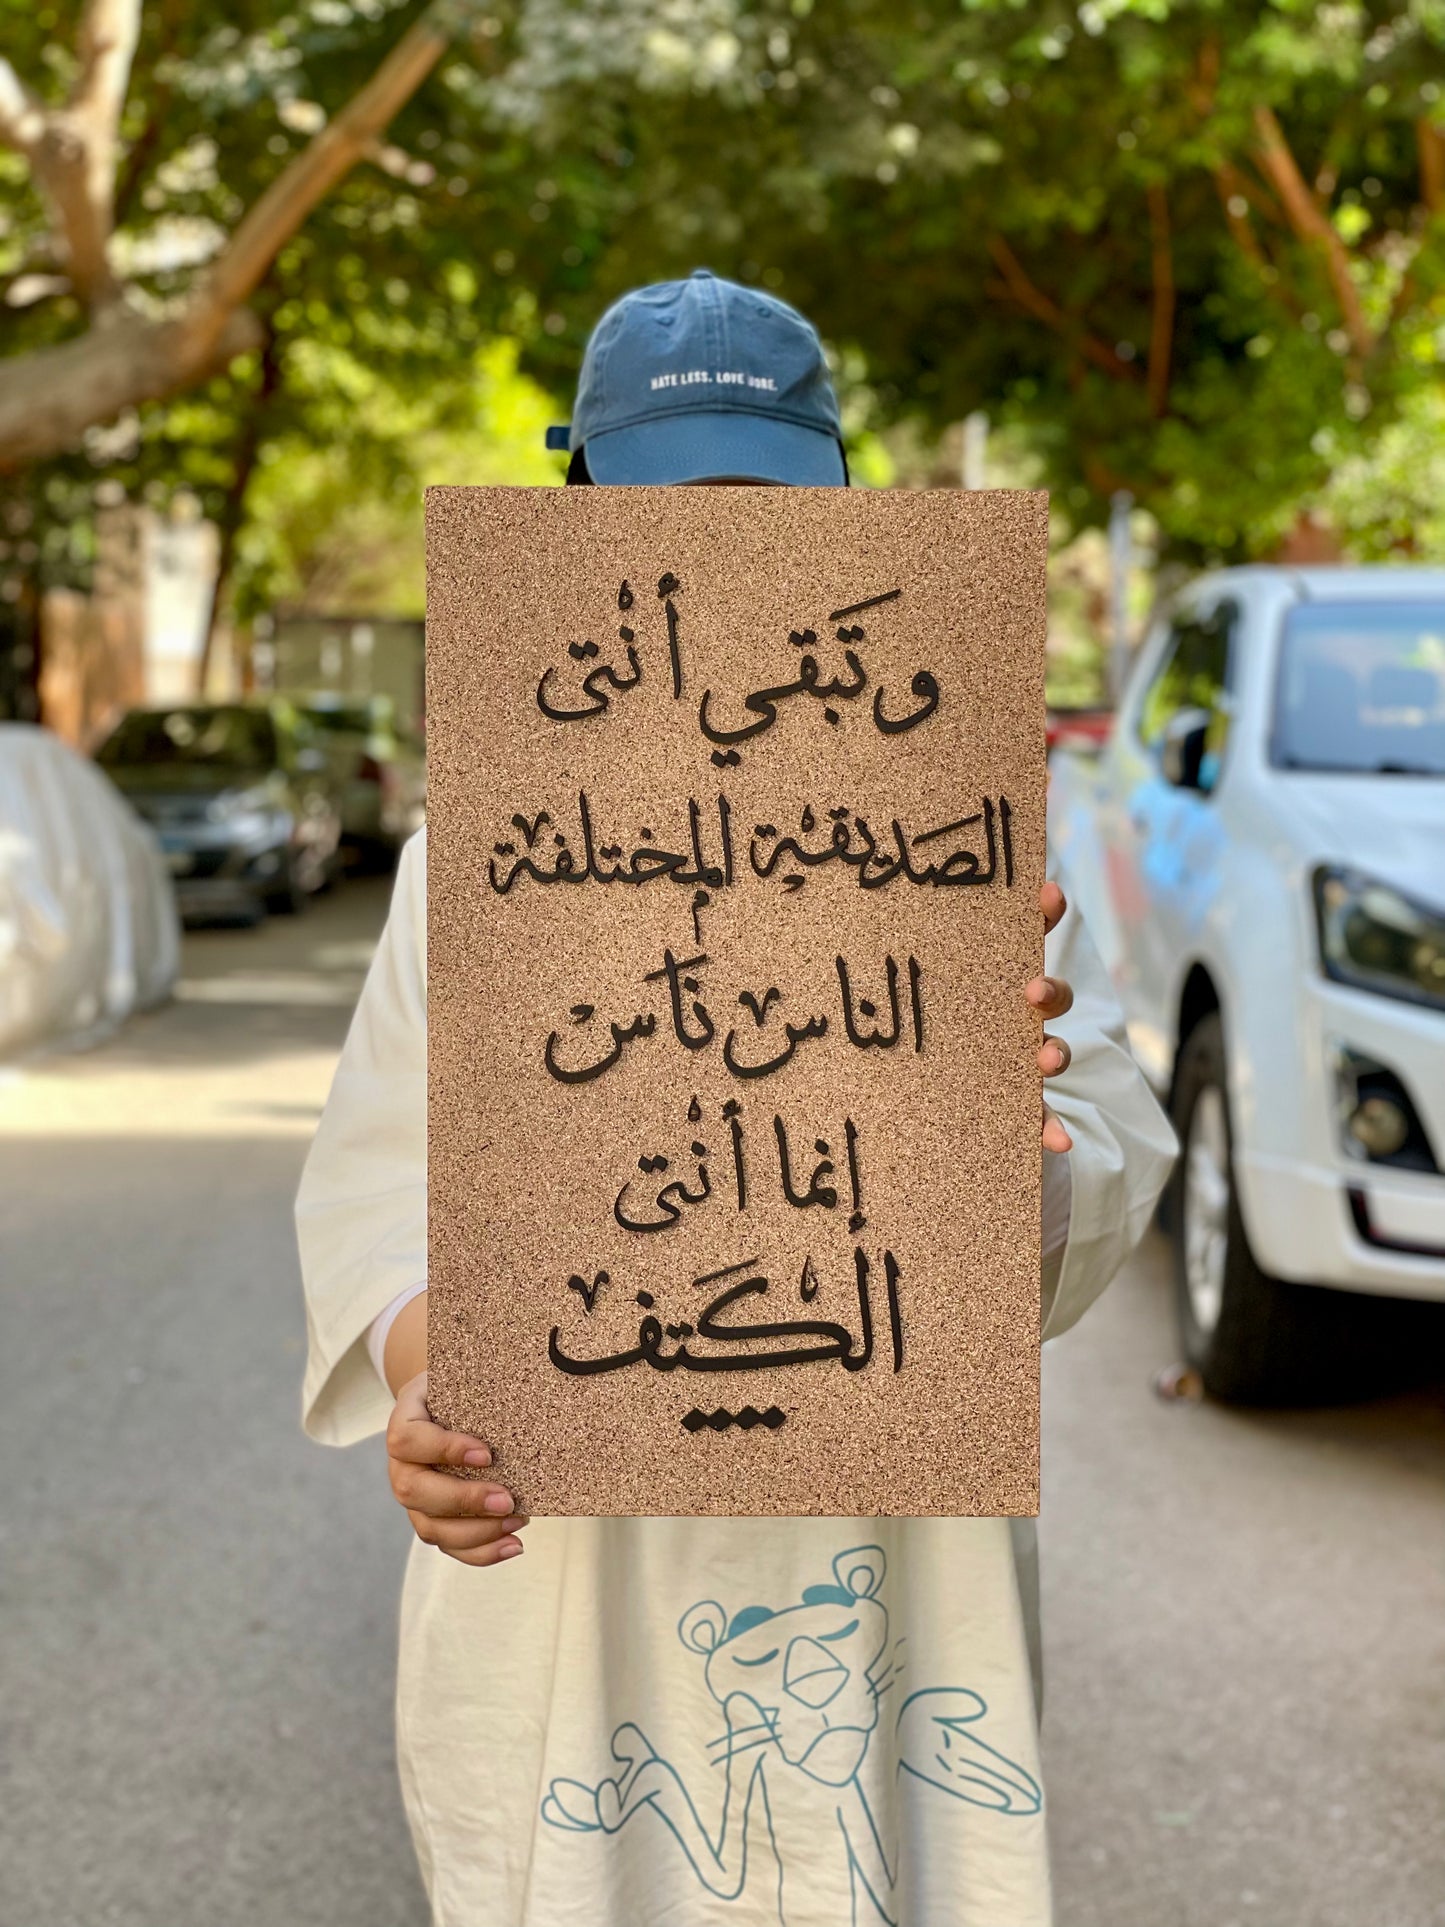 HATE LESS. LOVE MORE.
وَتَبقي أنْتى
الصَديقة المِختلفة
الناس نَاَس
إنما أنْتى
الكَتف